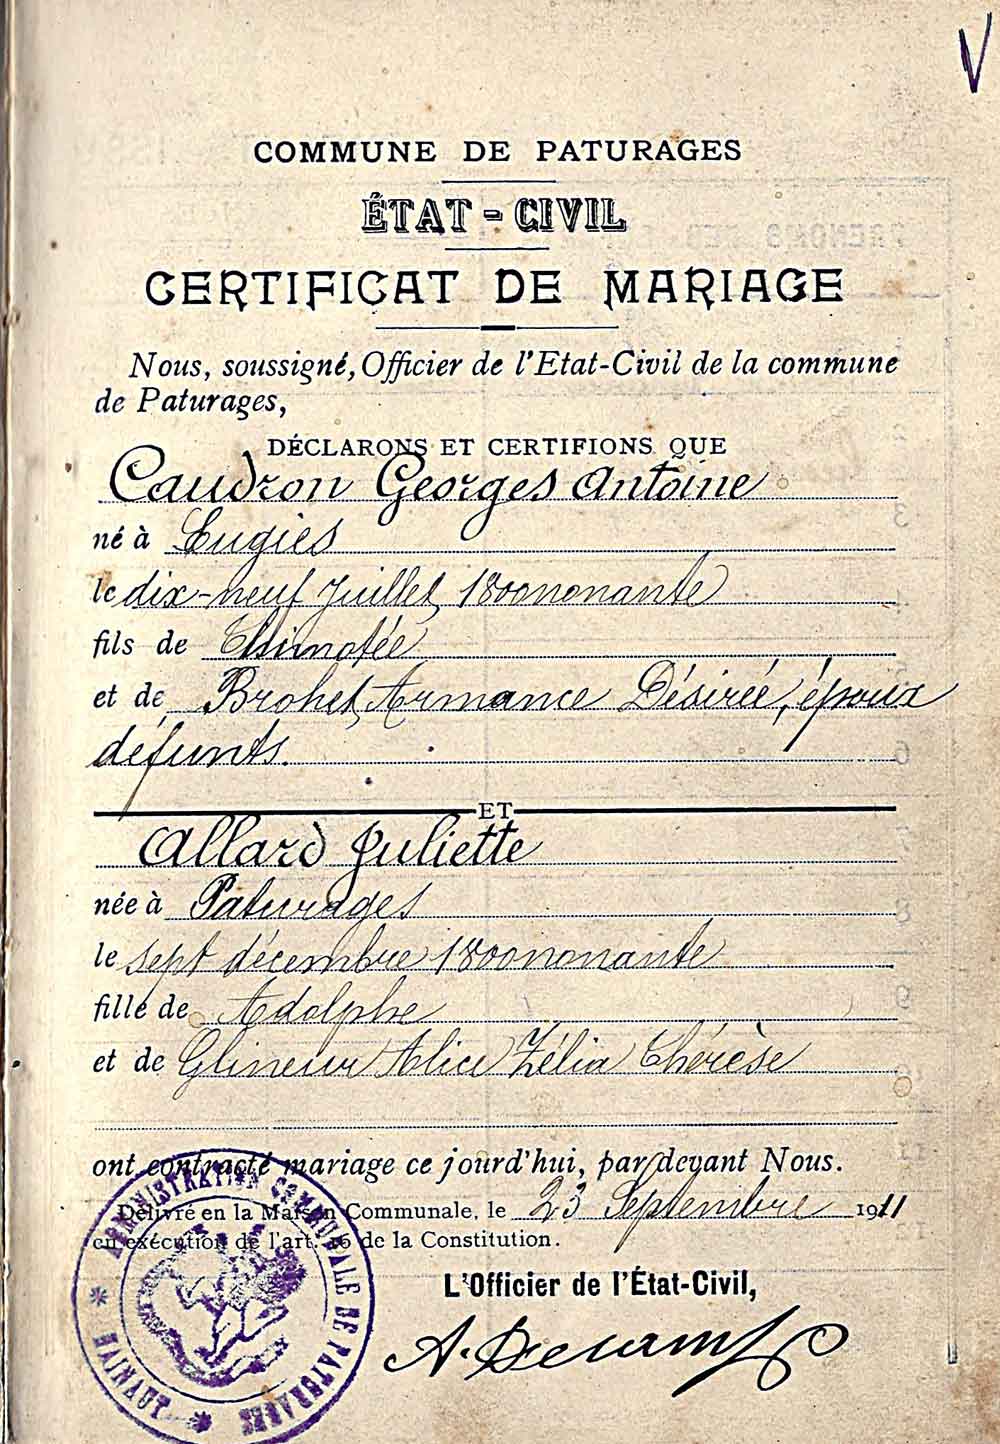 COMMUNE DE PATURAGES
ÉTAT-CIVIL
CERTIFICAT DE MARIAGE
Nous, soussigné, Officier de l'Etat-Civil de la commune
de Paturages,
DÉCLARONS ET CERTIFIONS QUE
Caudron Georges Antoine
né à Eugies
le dix-neuf Juillet 1800nonante
fils de Thimotée
et de Brohet, Armance Désirée, époux
défunts.
ET
Allard Juliette
née à Paturages
le sept décembre 1800nonante
fille de Adolphe
et de Glineur Alice Zélia Thérèse
ont contracté mariage ce jourd'hui, par devant Nous.
Délivré en la Maison Communale, le 23 Septembre 1911
en exécution de l'art. 16 de la Constitution.
L'Officier de l'État-Civil,
A. Descamps
ADMINISTRATION COMMUNALE DE PATURAGES
* HAINAUT *